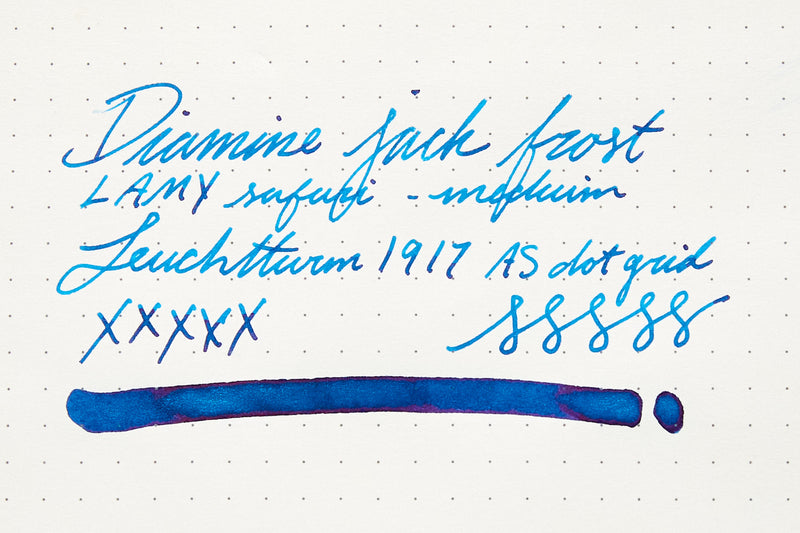 Diamine jack frost
LAMY safari - medium
Leuchtturm 1917 A5 dot grid
XXXXX